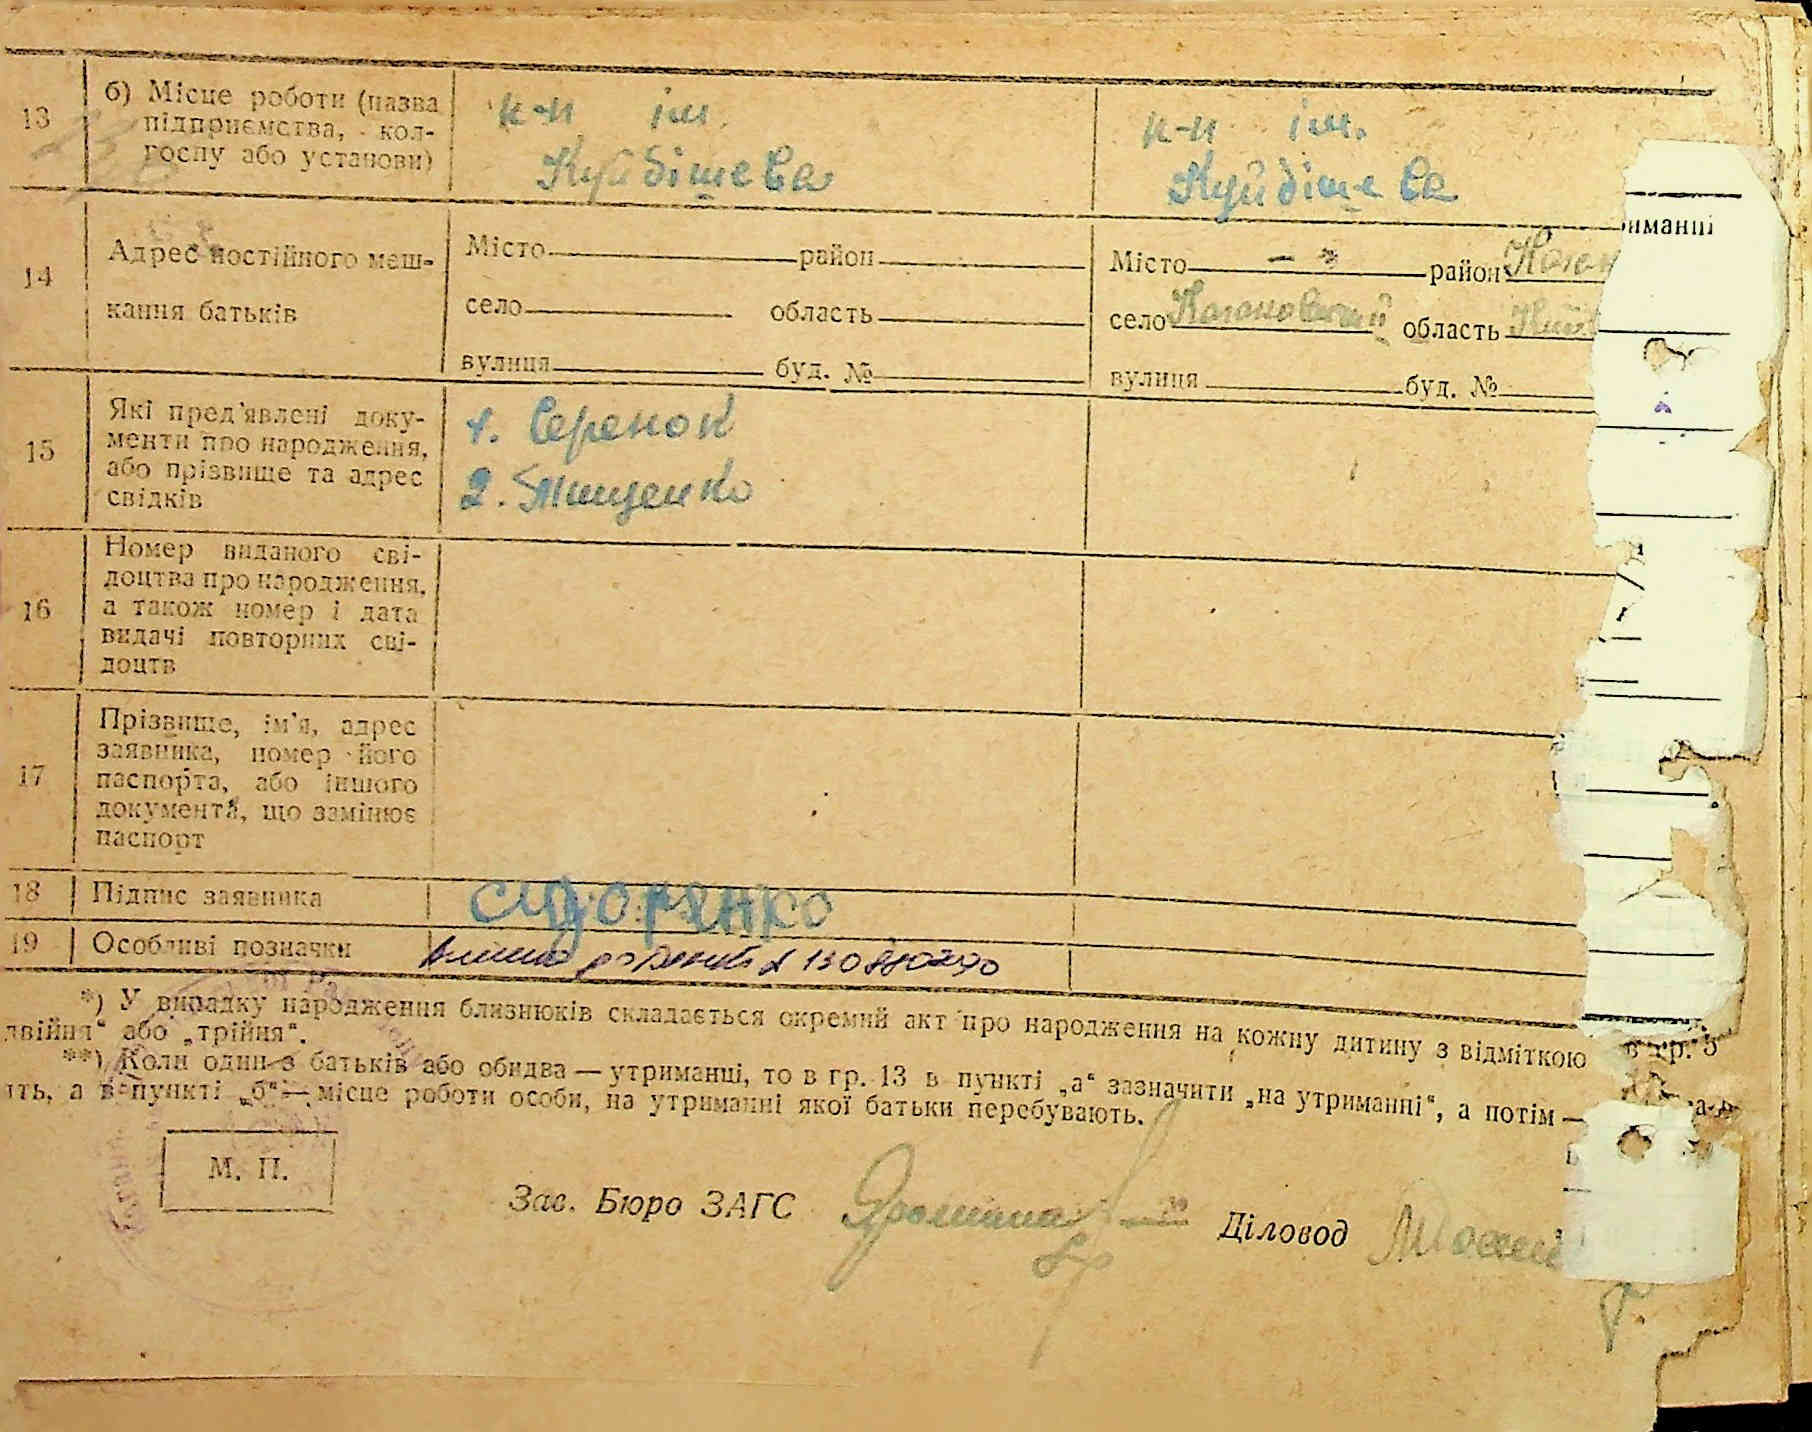 13
б) Місце роботи (назва
підприємства, кол-
госпу або установи)
к-п ім.
Куйбішева
к-п ім.
Куйбішева
14
Адрес постійного меш-
кання батьків
Місто район
село область
вулиця буд. №
Місто — " — район
село область
вулиця буд. №
иманні
15
Які пред'явлені доку-
менти про народження,
або прізвище та адрес
свідків
1. Серенок
2. Тищенко
16
Номер виданого сві-
доцтва про народження,
а також номер і дата
видачі повторних сві-
доцтв
17
Прізвище, ім'я, адрес
заявника, номер його
паспорта, або іншого
документа, що замінює
паспорт
18
Підпис заявника
Сидоренко
19
Особливі позначки
*) У випадку народження близнюків складається окремий акт про народження на кожну дитину з відміткою в гр. 5
двійня" або „трійня".
**) Коли один з батьків або обидва — утриманці, то в гр. 13 в пункті „а" зазначити „на утриманні", а потім —
ть, а в пункті „б" — місце роботи особи, на утриманні якої батьки перебувають.
М. П.
Зав. Бюро ЗАГС
Діловод